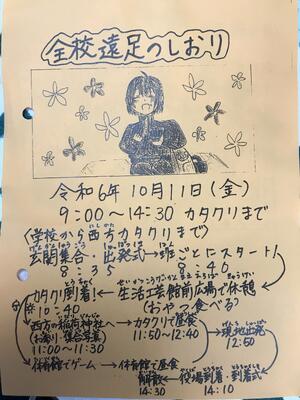 全校遠足のしおり
令和6年10月11日(金)
9:00〜14:30 カタクリまで
〈学校から西方カタクリまで〉
玄関集合・出発式→班ごとにスタート!
8:35 8:46
カタクリ到着!←生活工芸館前広場で休憩
10:40 (おやつ食べる)
西方の稲荷神社へ→カタクリで昼食→現地出発
(お参り・集合写真) 11:50〜12:40 12:50
11:00〜11:30
体育館でゲーム→体育館で昼食
解散←役場到着・到着式
14:30 14:10